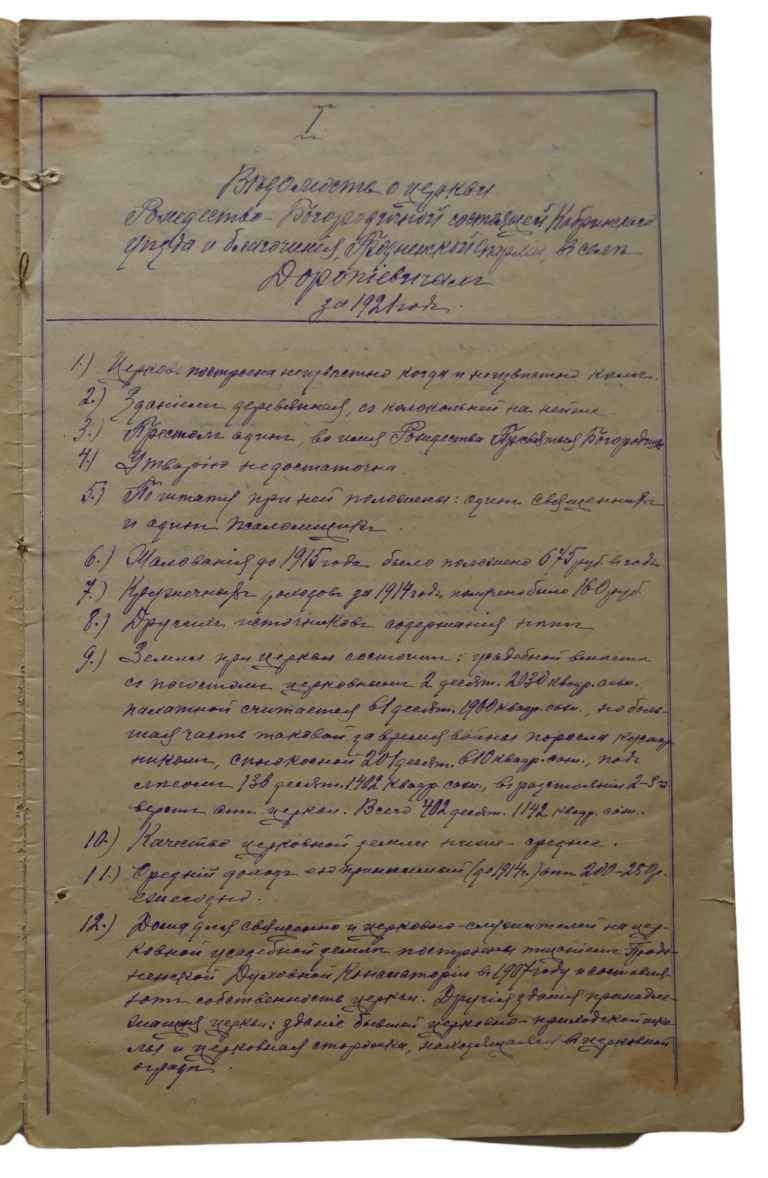 I
Вѣдомость о церкви
Рождество-Богородичной состоящей Кобринского
уѣзда и благочинія, Гродненской Епархіи, въ селѣ
Доропіевичахъ
за 1921 годъ.
1.) Церковь построена неизвѣстно когда и неизвѣстно кѣмъ.
2.) Зданіемъ деревянная, съ колокольней на ней же.
3.) Престолъ одинъ, во имя Рождества Пресвятыя Богородицы
4.) Утварью недостаточна.
5.) По штату при ней положены: одинъ священникъ
и одинъ псаломщикъ.
6.) Жалованія до 1915 года было положено 675 руб. въ годъ
7.) Кружечныхъ доходовъ за 1914 годъ получено было 160 руб.
8.) Другихъ источниковъ содержания нѣтъ
9.) Земли при церкви состоитъ: усадебной вмѣстѣ
съ погостомъ церковнымъ 2 десят. 2030 квадр. саж.
пахатной считается 61 десят. 1900 квадр. саж., но боль-
шая часть таковой за время войны поросла кустар
никомъ, сѣнокосной 201 десят. 610 квадр. саж., подъ
лѣсомъ 138 десят. 1402 квадр. саж., въ разстояніи 2-8
верстъ отъ церкви. Всего 402 десят. 1142 квадр. саж.
10.) Качество церковной земли ниже-средне.
11.) Средній доходъ ею приносимый (до 1914г.) отъ 200-250 р.
ежегодно.
12.) Дома для священно и церковно-служителей на цер-
ковной усадебной землѣ построены тщаніемъ Грод-
ненской Духовной Консисторіи въ 1907 году и составля-
ютъ собственность церкви. Другія зданія принадле-
жащія церкви: зданіе бывшей церковно-приходской шко-
лы и церковная сторожка, находящаяся въ церковной
оградѣ.